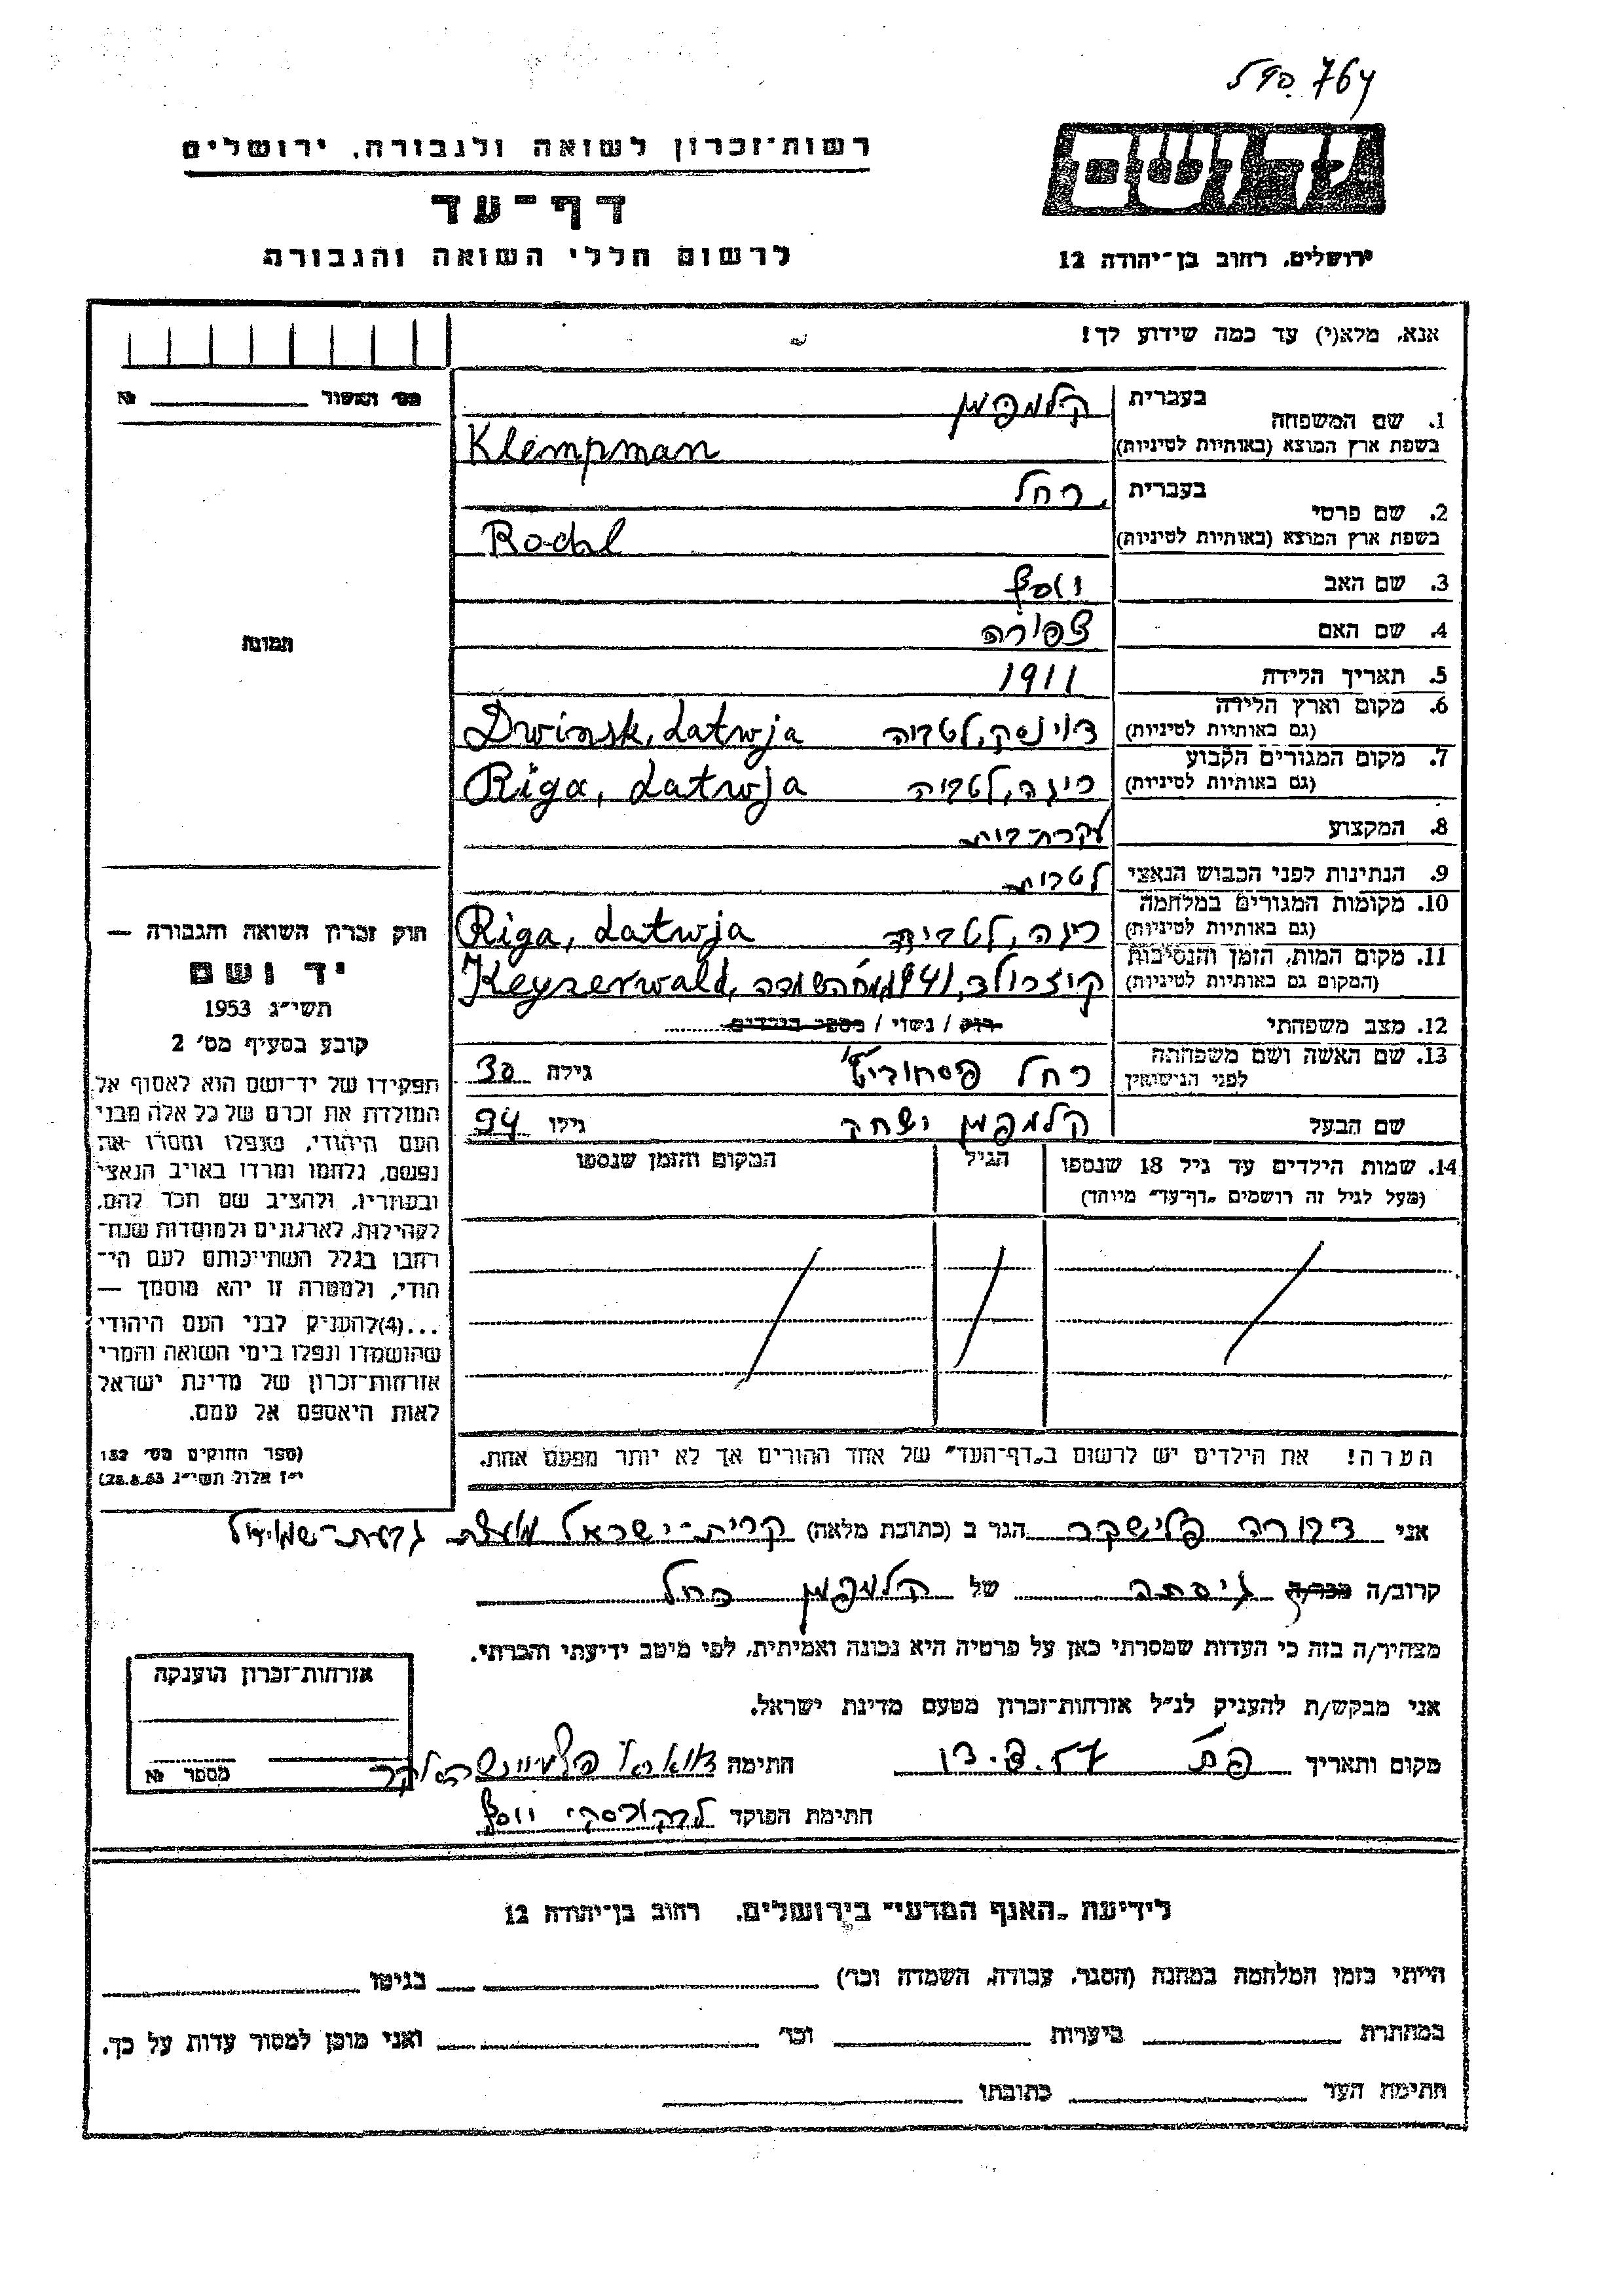 764
רשות־זכרון לשואה ולגבורה, ירושלים
יד ושם
דף־עד
לרשום חללי השואה והגבורה
ירושלים, רחוב בן־יהודה 12
אנא, מלא(י) עד כמה שידוע לך!
מס׳ האשור № 
1. שם המשפחה
בעברית קלמפמן
בשפת ארץ המוצא (באותיות לטיניות) Klempman
2. שם פרטי
בעברית רחל
בשפת ארץ המוצא (באותיות לטיניות) Rochl
3. שם האב יוסף
4. שם האם צפורה
5. תאריך הלידה 1911
6. מקום וארץ הלידה
(גם באותיות לטיניות) דוינסק, לטביה Dwinsk, Latwja
7. מקום המגורים הקבוע
(גם באותיות לטיניות) ריגה, לטביה Riga, Latwja
8. המקצוע עקרת בית
9. הנתינות לפני הכבוש הנאצי לטבית
10. מקומות המגורים במלחמה
(גם באותיות לטיניות) ריגה, לטביה Riga, Latwja
11. מקום המות, הזמן והנסיבות
(המקום גם באותיות לטיניות) קיזרולד, 1941, Keyzerwald,
12. מצב משפחתי רווק / נשוי / מספר הילדים
13. שם האשה ושם משפחתה
לפני הנישואין רחל גילה 30
שם הבעל קלמפמן יצחק גילו 34
14. שמות הילדים עד גיל 18 שנספו הגיל המקום והזמן שנספו
(מעל לגיל זה רושמים „דף־עד״ מיוחד)
הערה! את הילדים יש לרשום ב„דף־העד״ של אחד ההורים אך לא יותר מפעם אחת.
תמונה
חוק זכרון השואה והגבורה —
יד ושם
תשי״ג 1953
קובע בסעיף מס׳ 2
תפקידו של יד־ושם הוא לאסוף אל
המולדת את זכרם של כל אלה מבני
העם היהודי, שנפלו ומסרו את
נפשם, נלחמו ומרדו באויב הנאצי
ובעוזריו, ולהציב שם וזכר להם,
לקהילות, לארגונים ולמוסדות שנח־
רבו בגלל השתייכותם לעם הי־
הודי, ולמטרה זו יהא מוסמך —
...(4)להעניק לבני העם היהודי
שהושמדו ונפלו בימי השואה והמרי
אזרחות־זכרון של מדינת ישראל
לאות היאספם אל עמם.
(ספר החוקים מס׳ 132
י״ז אלול תשי״ג 28.8.53)
אני דבורה פלישקר הגר ב (כתובת מלאה) קרית־ישראל
קרוב/ה מכר/ה גיסתה של קלמפמן רחל
מצהיר/ה בזה כי העדות שמסרתי כאן על פרטיה היא נכונה ואמיתית, לפי מיטב ידיעתי והכרתי.
אני מבקש/ת להעניק לנ״ל אזרחות־זכרון מטעם מדינת ישראל.
מקום ותאריך חתימה
חתימת הפוקד יוסף
אזרחות־זכרון הוענקה
מספר №
לידיעת „האגף המדעי״ בירושלים, רחוב בן־יהודה 12
הייתי בזמן המלחמה במחנה (הסגר, עבודה, השמדה וכו׳) בגיטו
במחתרת ביערות וכו׳ ואני מוכן למסור עדות על כך.
חתימת העד כתובתו